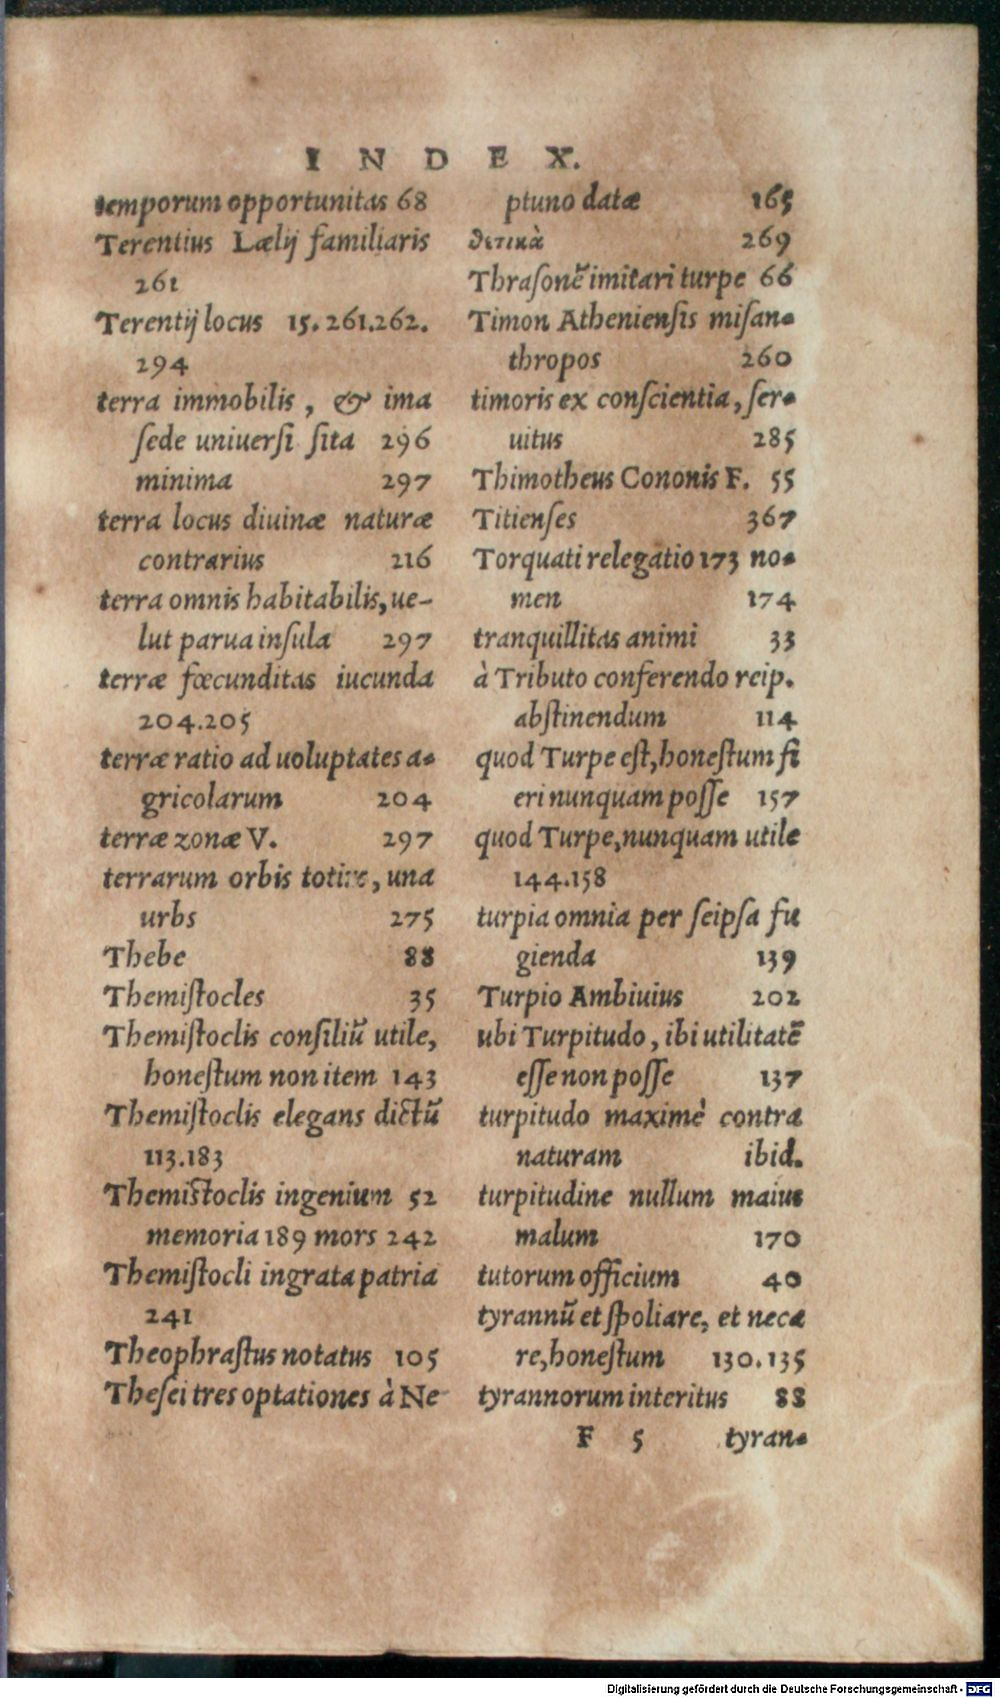 INDEX.
temporum opportunitas 68
Terentius Lælij familiaris
261
Terentij locus 15.261.262.
294
terra immobilis, & ima
ſede uniuerſi ſita 296
minima 297
terra locus diuinæ naturæ
contrarius 216
terra omnis habitabilis, ue-
lut parua inſula 297
terræ fœcunditas iucunda
204.205
terræ ratio ad uoluptates a-
gricolarum 204
terræ zonæ V. 297
terrarum orbis totius, una
urbs 275
Thebe 88
Themiſtocles 35
Themiſtoclis conſiliũ utile,
honeſtum non item 143
Themiſtoclis elegans dictũ
113.183
Themiſtoclis ingenium 52
memoria 189 mors 242
Themiſtocli ingrata patria
241
Theophraſtus notatus 105
Theſei tres optationes à Ne
ptuno datæ 165
θετικὰ 269
Thraſonẽ imitari turpe 66
Timon Athenienſis miſan-
thropos 260
timoris ex conſcientia, ſer-
uitus 285
Thimotheus Cononis F. 55
Titienſes 367
Torquati relegatio 173 no-
men 174
tranquillitas animi 33
à Tributo conferendo reip.
abſtinendum 114
quod Turpe eſt, honeſtum fi
eri nunquam poſſe 157
quod Turpe, nunquam utile
144.158
turpia omnia per ſeipſa fu
gienda 139
Turpio Ambiuius 202
ubi Turpitudo, ibi utilitatẽ
eſſe non poſſe 137
turpitudo maximè contra
naturam ibid.
turpitudine nullum maius
malum 170
tutorum officium 40
tyrannũ et ſpoliare, et neca
re, honeſtum 130.135
tyrannorum interitus 88
F 5 tyran-
Digitalisierung gefördert durch die Deutsche Forschungsgemeinschaft - DFG